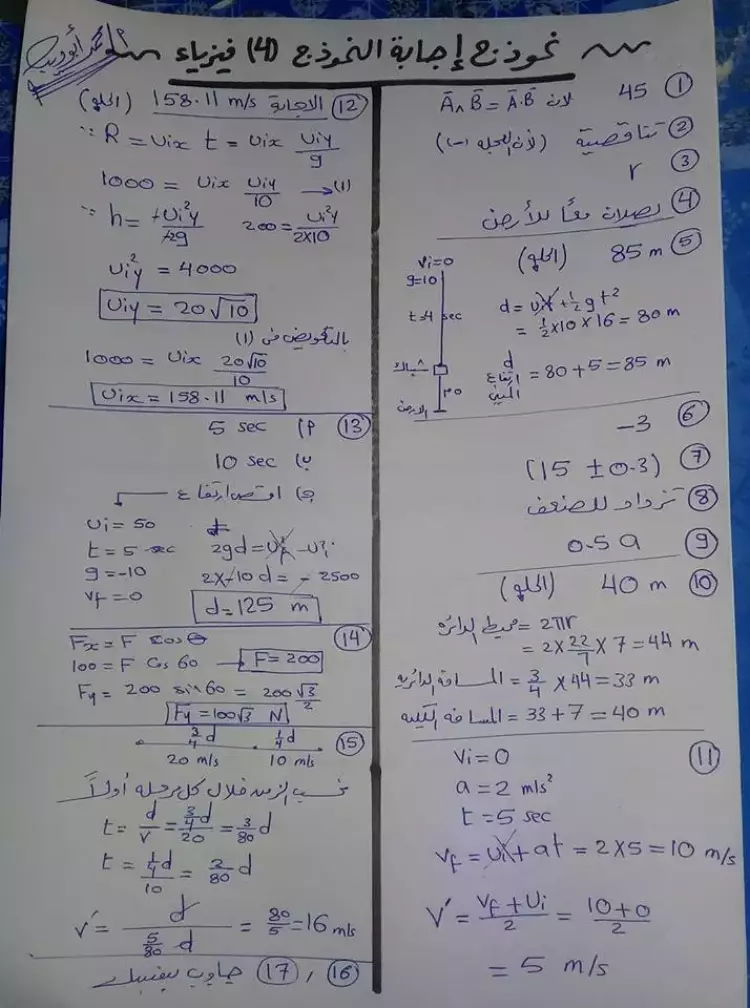 نموذج إجابة النموذج (4) فيزياء
محمد أبو ديب
① 45 لان A̅∧B̅ = A̅·B̅
② تناقصية (لأن العجله (-))
③ r
④ يصلان معاً للأرض
⑤ 85 m (الحلو)
Vi=0
g=10
t=4 sec
شباك
الارض
d = Uit + ½ g t²
= ½×10×16 = 80 m
d ارتفاع المبنى = 80 + 5 = 85 m
⑥ -3
⑦ (15 ± 0.3)
⑧ تزداد للضعف
⑨ 0.5 a
⑩ 40 m (الحلو)
محيط الدائره = 2πr
= 2 × 22/7 × 7 = 44 m
المسافه الدائريه = 3/4 × 44 = 33 m
المسافه الكليه = 33 + 7 = 40 m
⑪ Vi = 0
a = 2 m/s²
t = 5 sec
Vf = Ui + at = 2×5 = 10 m/s
V' = (Vf + Ui)/2 = (10+0)/2
= 5 m/s
⑫ الاجابة 158.11 m/s (الحلو)
∵ R = Uix t = Uix Uiy/g
1000 = Uix Uiy/10 → (1)
∵ h = +Ui²y/+2g 200 = Ui²y/2×10
Uiy² = 4000
Uiy = 20√10
بالتعويض فى (1)
1000 = Uix 20√10/10
Uix = 158.11 m/s
⑬ P) 5 sec
ب) 10 sec
ج) اقصى ارتفاع
Ui = 50
t = 5 sec
g = -10
Vf = 0
2gd = Vf² - Ui²
2×-10 d = - 2500
d = 125 m
⑭ Fx = F cos θ
100 = F Cos 60 → F = 200
Fy = 200 sin 60 = 200 √3/2
Fy = 100√3 N
⑮ 3/4 d 1/4 d
20 m/s 10 m/s
نحسب الزمن خلال كل مرحله أولاً
t = d/v = 3/4 d/20 = 3/80 d
t = 1/4 d/10 = 2/80 d
V' = d/(5/80 d) = 80/5 = 16 m/s
⑯ , ⑰ جاوب بنفسك